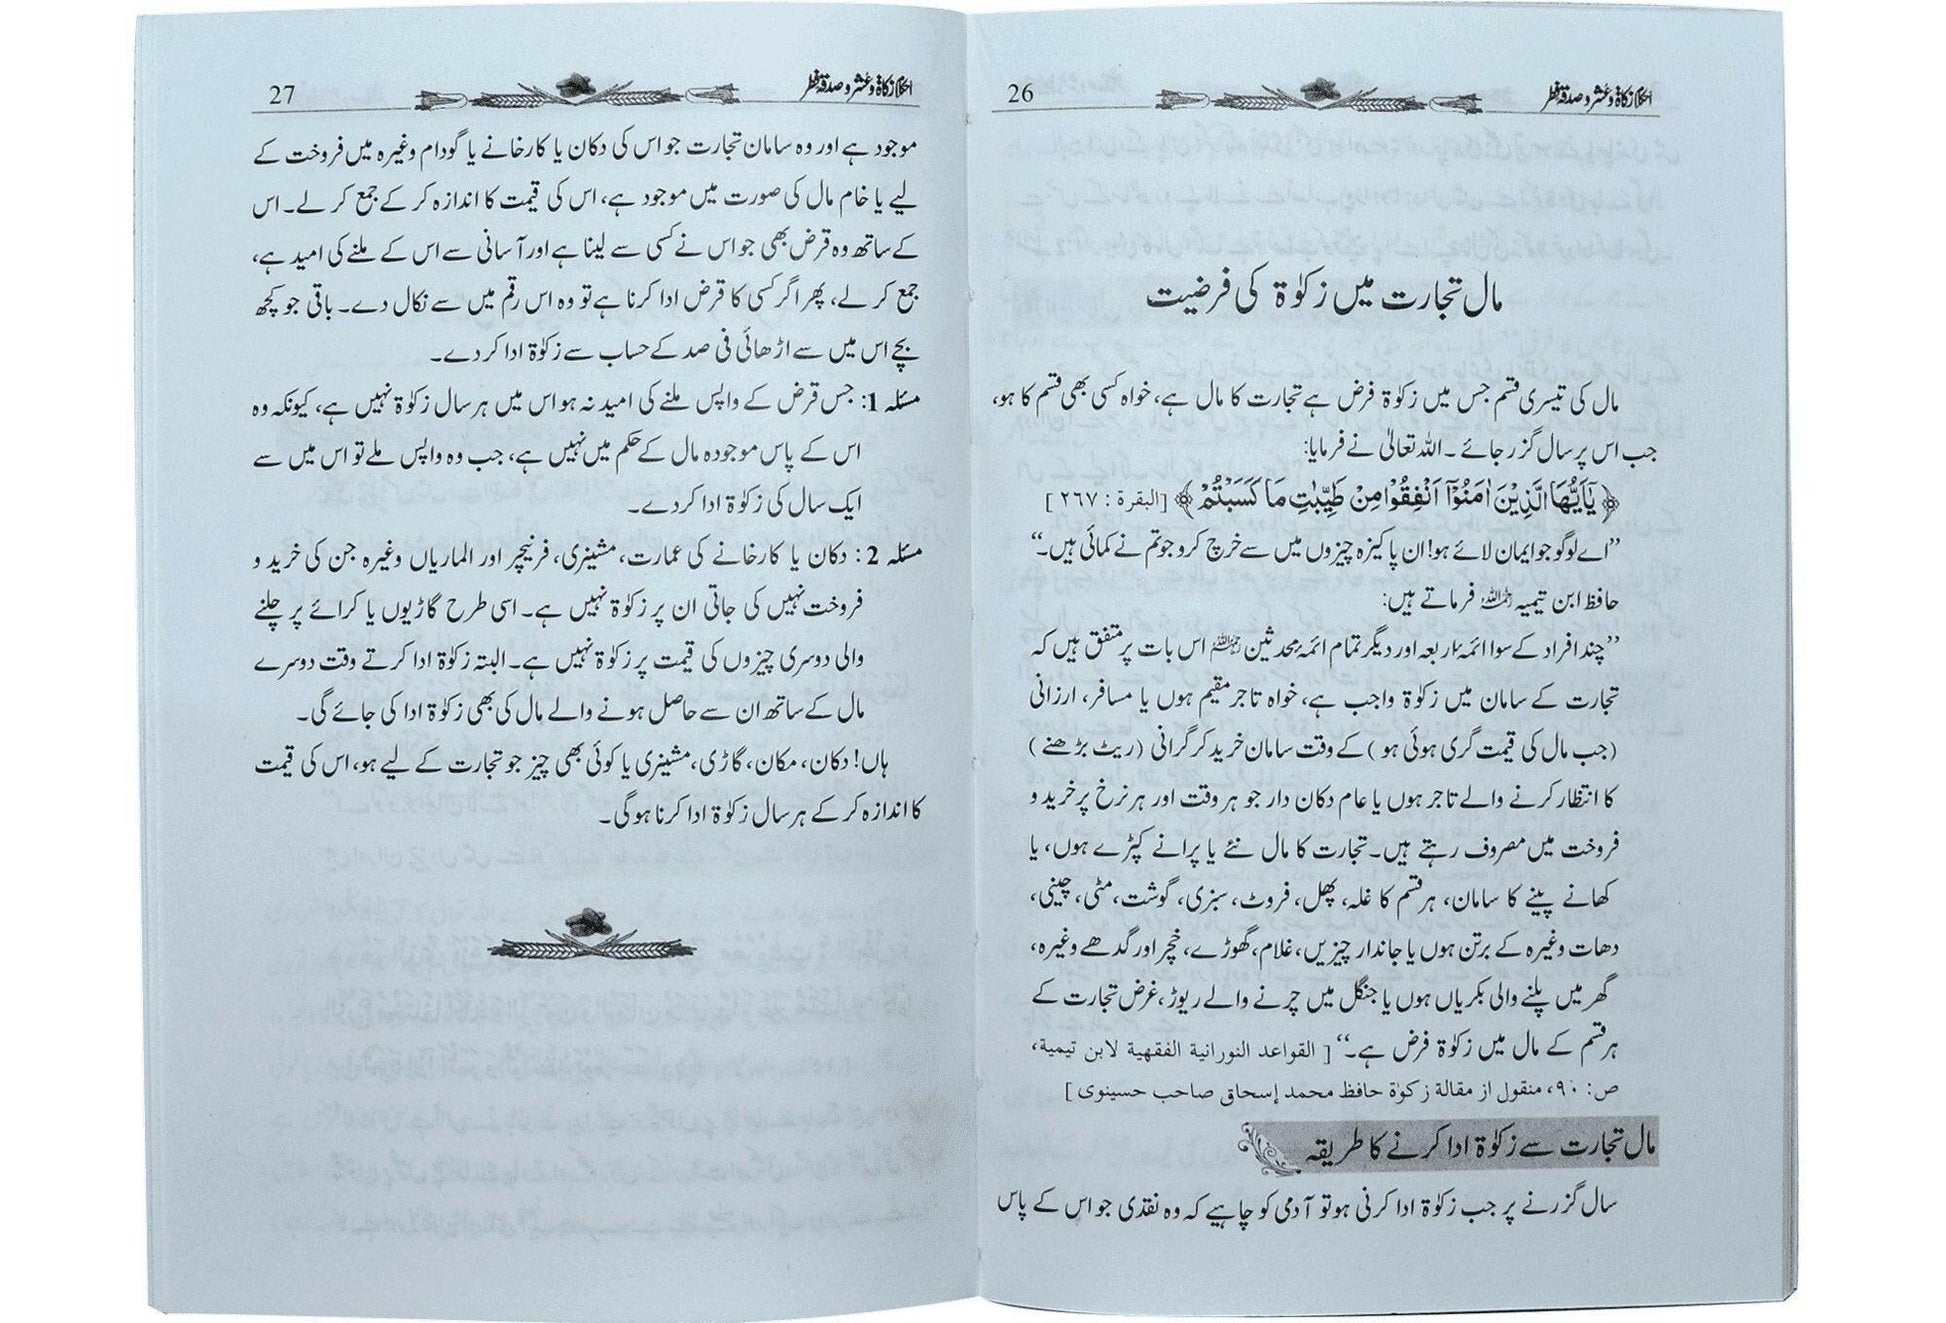 احکام زکاۃ و عشر و صدقہ فطر
26
مال تجارت میں زکوٰۃ کی فرضیت
مال کی تیسری قسم جس میں زکوٰۃ فرض ہے تجارت کا مال ہے، خواہ کسی بھی قسم کا ہو،
جب اس پر سال گزر جائے ۔ اللہ تعالیٰ نے فرمایا:
﴿ يٰٓاَيُّهَا الَّذِيْنَ اٰمَنُوْٓا اَنْفِقُوْا مِنْ طَيِّبٰتِ مَا كَسَبْتُمْ ﴾ [البقرة : ٢٦٧ ]
’’اے لوگو جو ایمان لائے ہو! ان پاکیزہ چیزوں میں سے خرچ کرو جو تم نے کمائی ہیں۔‘‘
حافظ ابن تیمیہ رحمہ اللہ فرماتے ہیں:
’’چند افراد کے سوا ائمہ اربعہ اور دیگر تمام ائمہ محدثین رحمہم اللہ اس بات پر متفق ہیں کہ
تجارت کے سامان میں زکوٰۃ واجب ہے، خواہ تاجر مقیم ہوں یا مسافر، ارزانی
(جب مال کی قیمت گری ہوئی ہو ) کے وقت سامان خرید کر گرانی (ریٹ بڑھنے )
کا انتظار کرنے والے تاجر ہوں یا عام دکان دار جو ہر وقت اور ہر نرخ پر خرید و
فروخت میں مصروف رہتے ہیں۔ تجارت کا مال نئے یا پرانے کپڑے ہوں، یا
کھانے پینے کا سامان، ہر قسم کا غلہ، پھل، فروٹ، سبزی، گوشت، مٹی، چینی،
دھات وغیرہ کے برتن ہوں یا جاندار چیزیں، غلام، گھوڑے، خچر اور گدھے وغیرہ،
گھر میں پلنے والی بکریاں ہوں یا جنگل میں چرنے والے ریوڑ، غرض تجارت کے
ہر قسم کے مال میں زکوٰۃ فرض ہے۔‘‘ [ القواعد النورانية الفقهية لابن تيمية،
ص: ٩٠، منقول از مقالة زكوٰة حافظ محمد إسحاق صاحب حسينوى ]
مال تجارت سے زکوٰۃ ادا کرنے کا طریقہ
سال گزرنے پر جب زکوٰۃ ادا کرنی ہو تو آدمی کو چاہیے کہ وہ نقدی جو اس کے پاس
احکام زکاۃ و عشر و صدقہ فطر
27
موجود ہے اور وہ سامان تجارت جو اس کی دکان یا کارخانے یا گودام وغیرہ میں فروخت کے
لیے یا خام مال کی صورت میں موجود ہے، اس کی قیمت کا اندازہ کر کے جمع کر لے۔ اس
کے ساتھ وہ قرض بھی جو اس نے کسی سے لینا ہے اور آسانی سے اس کے ملنے کی امید ہے،
جمع کر لے، پھر اگر کسی کا قرض ادا کرنا ہے تو وہ اس رقم میں سے نکال دے۔ باقی جو کچھ
بچے اس میں سے اڑھائی فی صد کے حساب سے زکوٰۃ ادا کر دے۔
مسئلہ 1: جس قرض کے واپس ملنے کی امید نہ ہو اس میں ہر سال زکوٰۃ نہیں ہے، کیونکہ وہ
اس کے پاس موجودہ مال کے حکم میں نہیں ہے، جب وہ واپس ملے تو اس میں سے
ایک سال کی زکوٰۃ ادا کر دے۔
مسئلہ 2 : دکان یا کارخانے کی عمارت، مشینری، فرنیچر اور الماریاں وغیرہ جن کی خرید و
فروخت نہیں کی جاتی ان پر زکوٰۃ نہیں ہے۔ اسی طرح گاڑیوں یا کرائے پر چلنے
والی دوسری چیزوں کی قیمت پر زکوٰۃ نہیں ہے۔ البتہ زکوٰۃ ادا کرتے وقت دوسرے
مال کے ساتھ ان سے حاصل ہونے والے مال کی بھی زکوٰۃ ادا کی جائے گی۔
ہاں! دکان، مکان، گاڑی، مشینری یا کوئی بھی چیز جو تجارت کے لیے ہو، اس کی قیمت
کا اندازہ کر کے ہر سال زکوٰۃ ادا کرنا ہو گی۔